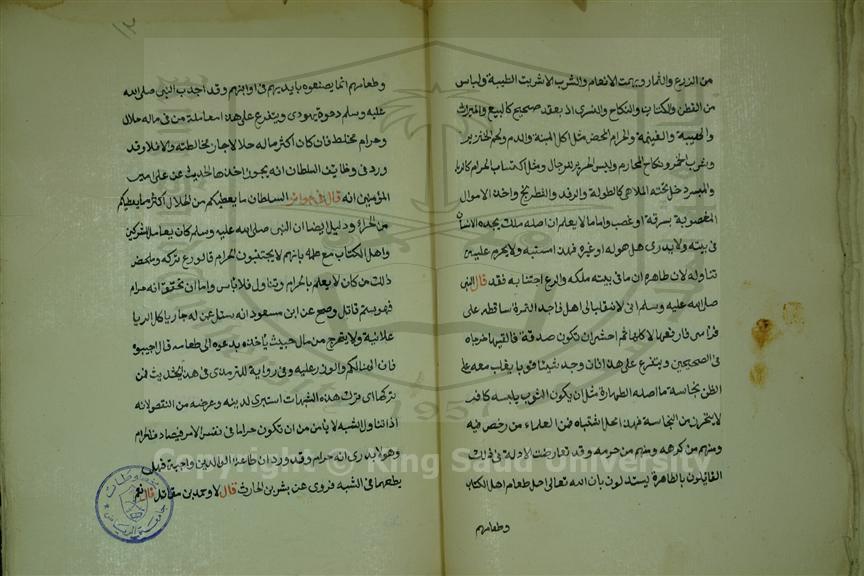 من الزرع والثمار وبهيمة الانعام والشرب الاشربت الطيبة ولباس
من القطن والكتان والنكاح والتسرى اذ بعقد صحيح كالبيع والميراث
والهبة والغنيمة والحرام المحض مثل اكل الميتة والدم ولحم الخنزير
وشرب الخمر ونكاح المحارم ولبس الحرير للرجال ومثل اكتساب الحرام كالربا
والميسر دخل تحته الملاهي كالطولة والنرد والشطرنج واخذ الاموال
المغصوبة بسرقة او غصب واما ما لا يعلم ان اصله ملك يجده الانسان
في بيته ولا يدرى هل هو له او غيره فهذا مشتبه ولا يحرم عليه
تناوله لان ظاهره ان ما في بيته ملكه والورع اجتنابه فقد قال النبي
صلى الله عليه وسلم انى لانقلب الى اهل فاجد التمرة ساقطة على
فراشى فارفعها لاكلها ثم اخشى ان تكون صدقة فالقيها خرجاه
في الصحيحين ويتفرع على هذا اذا وجد شيئا فوبا يغلب معه على
الظن نجاسة ما اصله الطهارة مثل ان يكون الثوب يلبسه كافر
لا يتحرز من النجاسة فهذا محل اشتباه فمن العلماء من رخص فيه
ومنهم من كرهه ومنهم من حرمه وقد تعارضت الادلة في ذلك
القائلون بالطاهرة يستدلون بان الله تعالى احل طعام اهل الكتاب
وطعامهم
١٣
وطعامهم انما يصنعوه بايديهم في اوانيهم وقد اجاب النبى صلى الله
عليه وسلم دعوة يهودى ويتفرع على هذا معاملة من في ماله حلال
وحرام مختلط فان كان اكثر ماله حلالا جاز مخالطته والا فلا وقد
ورد في وظايف السلطان انه يجوز اخذها لحديث عن على امير
المؤمنين انه قال في جوائز السلطان ما يعطيكم من الحلال اكثر ما يعطيكم
من الحرام ودليل ايضا ان النبى صلى الله عليه وسلم كان يعامل المشركين
واهل الكتاب مع علمه بانهم لا يجتنبون الحرام فالورع تركه
ذلك من كان لا يعلم بالحرام وتناول فلا باس واما ان تحقق انه حرام
وصح عن ابن مسعود انه سئل عن له جار ياكل الربا
علانية ولا يتحرج من مال خبيث ياخذه يدعوه الى طعامه قال اجيبوه
فان الهنا لكم والوزر عليه وفي رواية للترمذى في هذا الحديث فمن
تركها اى ترك هذه الشبهات استبرى لدينه وعرضه من النقص لانه
اذا تناول الشبه لا يأمن من ان تكون حراما في نفس الامر فيصادف الحرام
وهو لا يدرى انه حرام وقد ورد ان طاعة الوالدين واجبة فهل
يطعهما في الشبه فروى عن بشر بن الحارث قال لا وعن بن مقاتل قال نعم
Copyright © King Saud University
1957